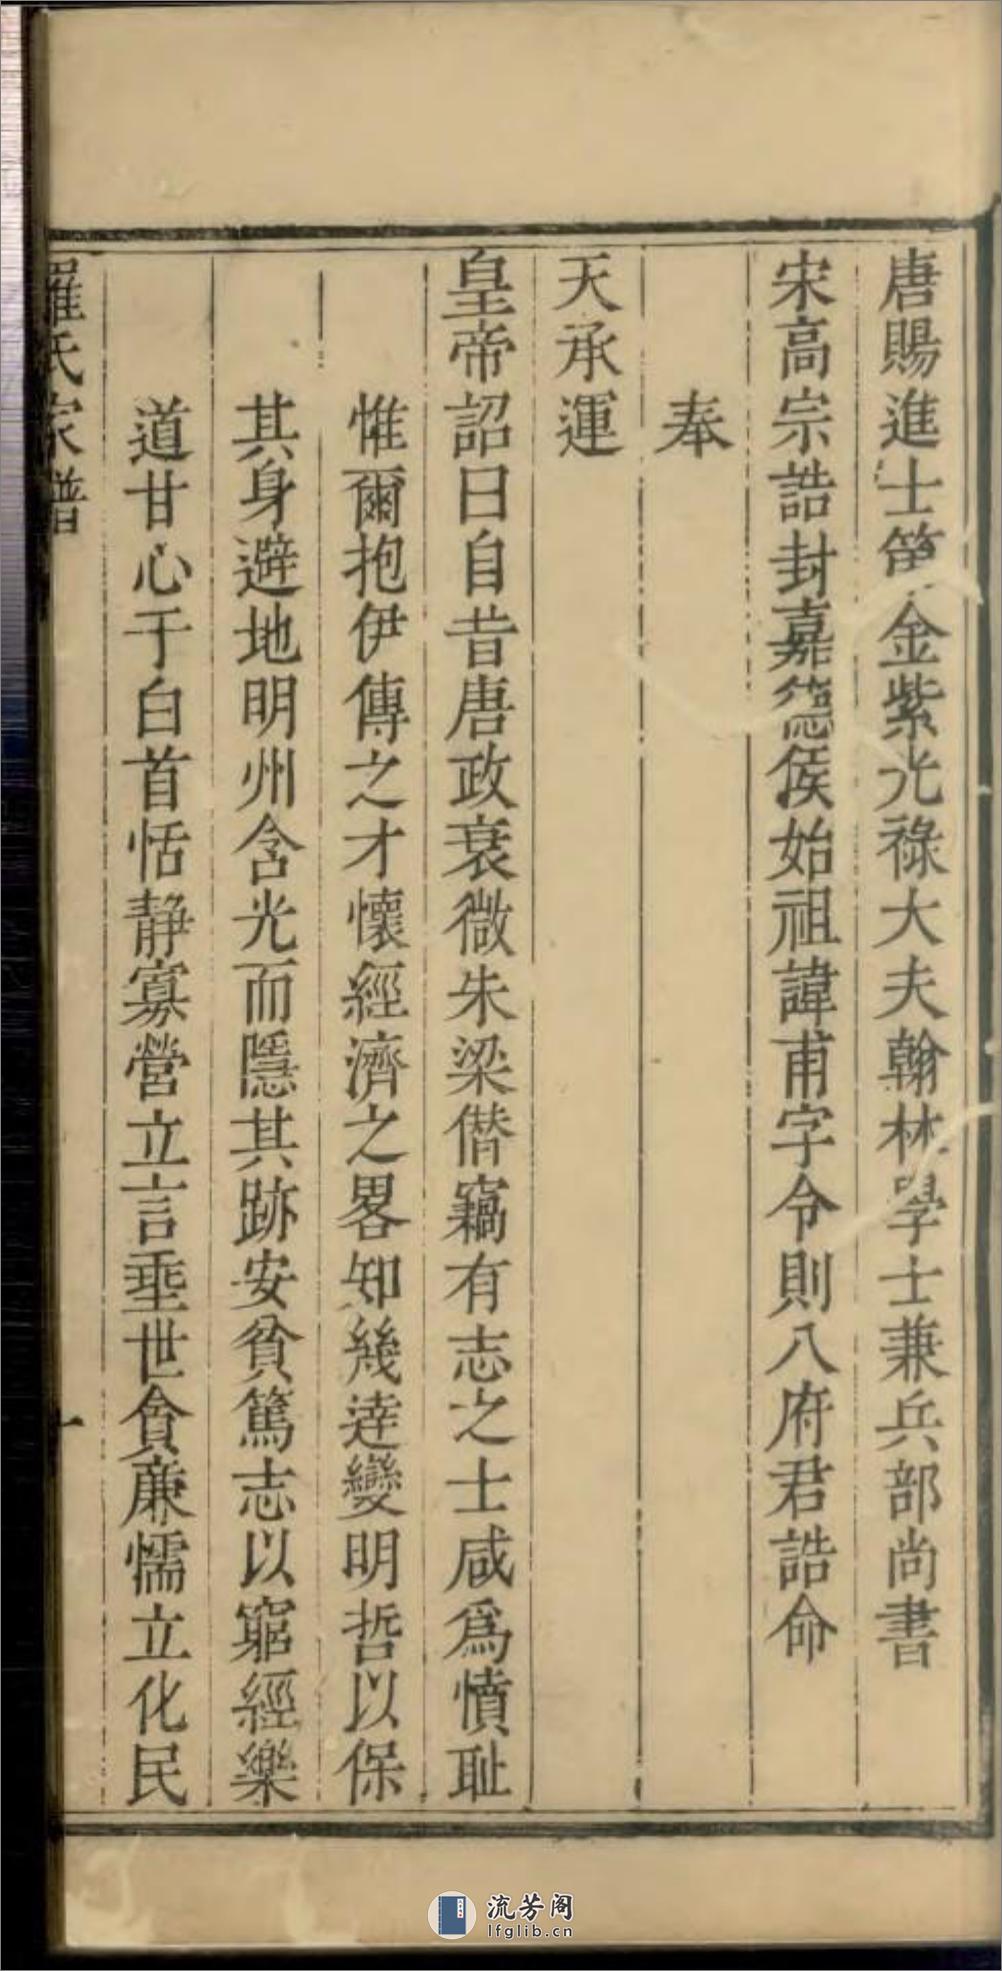 唐賜進士第金紫光祿大夫翰林學士兼兵部尚書
宋高宗誥封嘉德侯始祖諱甫字令則八府君誥命
奉
天承運
皇帝詔曰自昔唐政衰微朱梁僭竊有志之士咸爲憤耻
惟爾抱伊傅之才懷經濟之畧知幾逹變明哲以保
其身避地明州含光而隱其跡安貧篤志以窮經樂
道甘心于白首恬静寡營立言垂世貪廉懦立化民
羅氏家譜
一
流芳阁
lfglib.cn